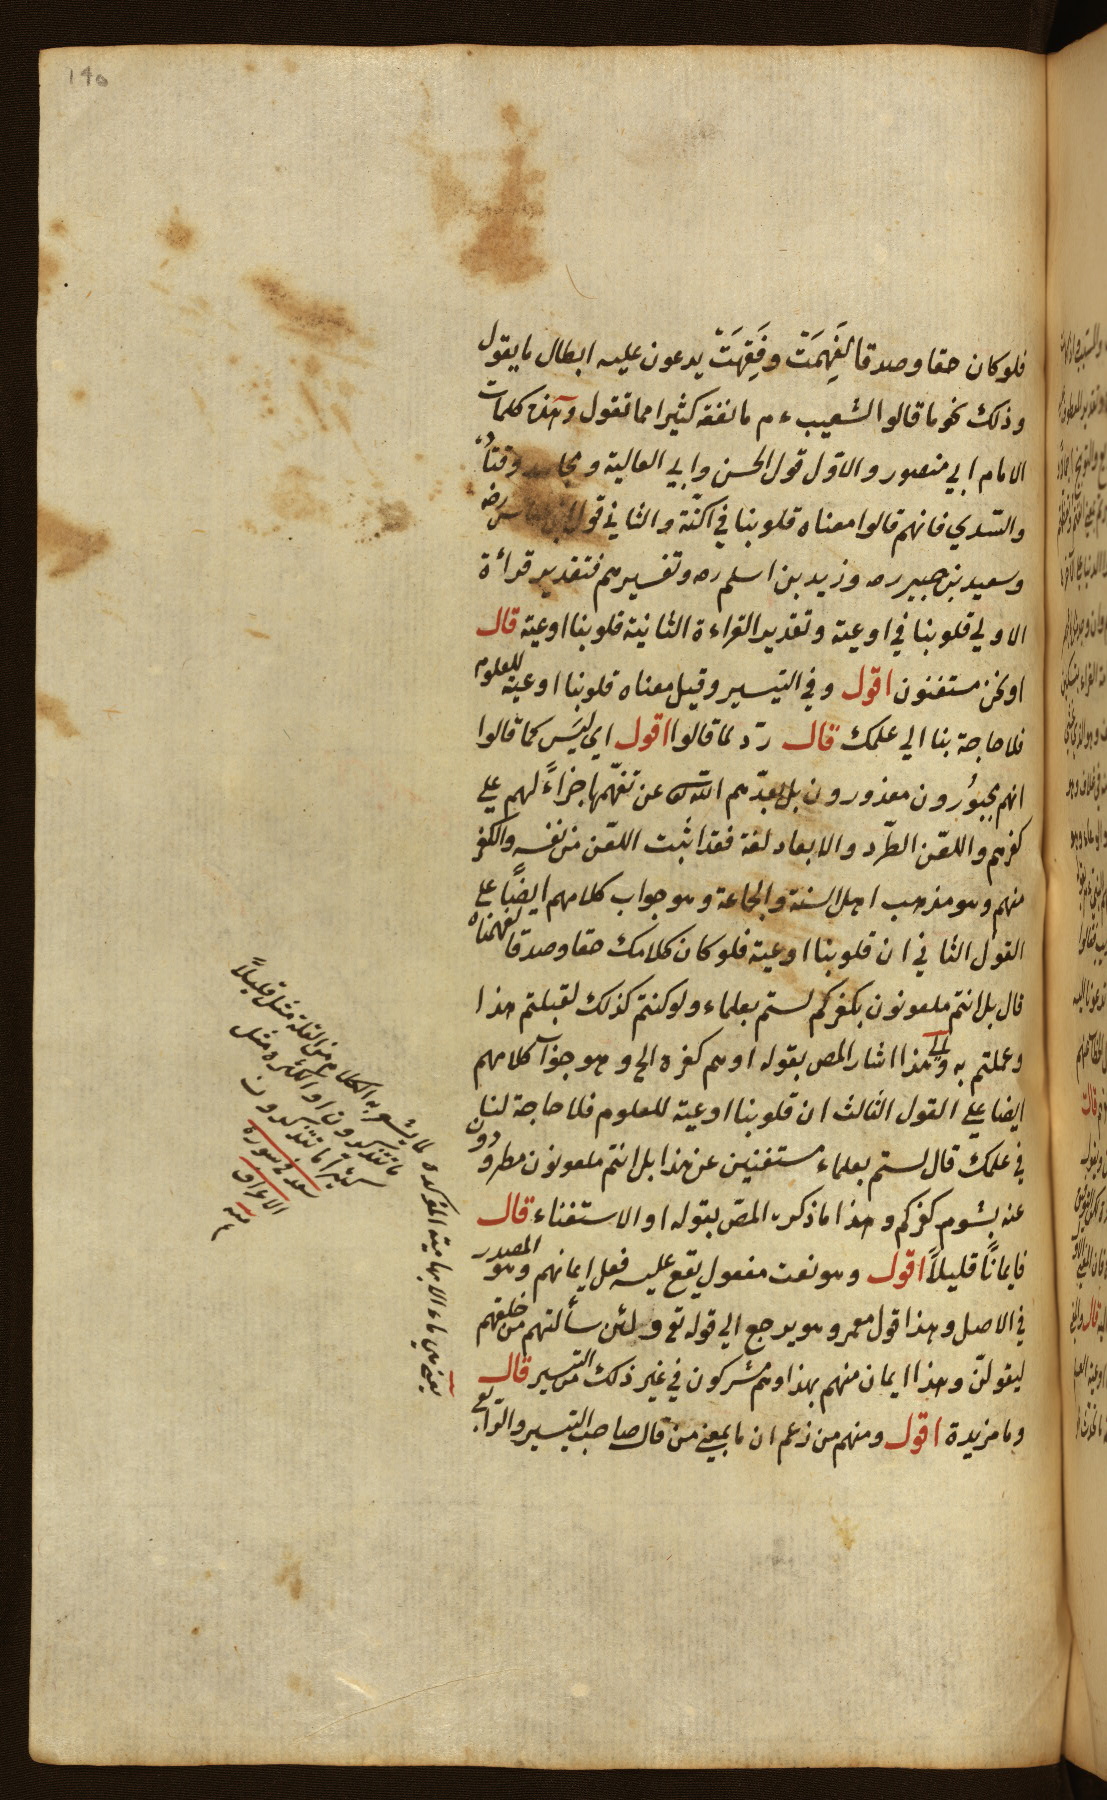 ١٩٥
فلو كان حقا وصدقا لَفَهِمَتْ وفَقِهَتْ يدعون عليه ابطال ما يقول
وذلك نحو ما قالوا لشعيب ءم ما نفقه كثيرا مما تقول وهذه كلمات
الامام ابي منصور والاوّل قول الحسن وابي العالية ومجاهد وقتادة
والسّدي فانهم قالوا معناه قلوبنا في اكنّة والثاني قول ابن عباس رضه
وسعيد بن جبير ره وزيد بن اسلم ره وتفسيرهم فتقدير قراءة
الاولي قلوبنا في اوعية وتقدير القراءة الثانية قلوبنا اوعية قال
او نحن مستغنون اقول وفي التيسير وقيل معناه قلوبنا اوعية للعلوم
فلا حاجة بنا الي علمك قال ردّ لما قالوا اقول اي ليس كما قالوا
انهم مجبورون معذورون بل بعدّهم الله تعن تفهّمها جزاءً لهم علي
كفرهم واللعن الطّرد والابعاد لغة فقد اثبت اللعن من نفسه والكفر
منهم وهو مذهب اهل السنة والجاعة وهو جواب كلامهم ايضًا علي
القول الثاني ان قلوبنا اوعية فلو كان كلامك حقا وصدقا لفهمناه
قال بل انتم ملعونون بكفركم لستم بعلماء ولو كنتم كذلك لقبلتم هذا
وعملتم به والي هذا اشار المص بقوله او هم كفرة الخ وهو جواب كلامهم
ايضا علي القول الثالث ان قلوبنا اوعية للعلوم فلا حاجة لنا
في علمك قال لستم بعلماء مستغنين عن هذا بل انتم ملعونون مطرودون
عنه بشوم كفركم وهذا ما ذكره المص بقوله او الاستغناء قال
فايمانًا قليلاً اقول وهو نعت مفعول يقع عليه فعل ايمانهم وهو المصدر
في الاصل وهذا قول معمر وهو يرجع الي قوله تع ولئن سألتهم من خلقهم
ليقولنّ وهذا ايمان منهم بهذا وهم مشركون في غير ذلك من التيسير قال
وما مزيدة اقول ومنهم من زعم ان ما بمعني من قال صاحب التيسير والرّابع
يعني ان ماء الابهامية المؤكدة لما يشعر به الكلام من القلة مثل قليلاً
ما تتذكرون او الكثرة مثل
كثيرا ما تتذكرون
سعد في سورة
الاعراف
منه